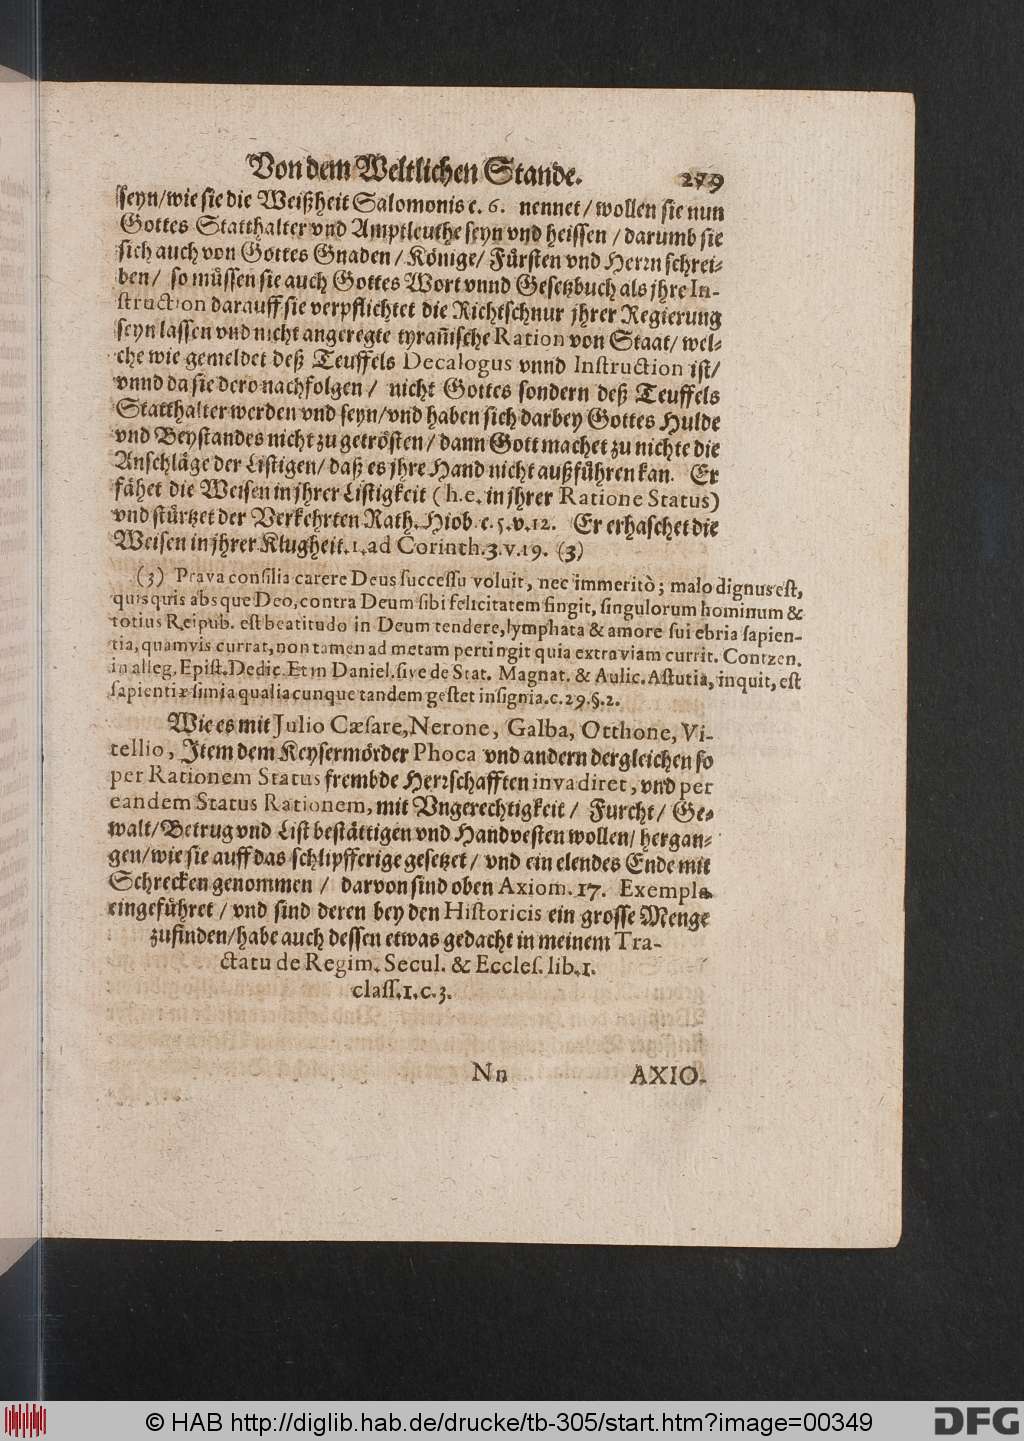 Von dem Weltlichen Stande. 279
seyn/wie sie die Weißheit Salomonis c. 6. nennet/wollen sie nun
Gottes Statthalter vnd Amptleuthe seyn vnd heissen/darumb sie
sich auch von Gottes Gnaden/Könige/Fürsten vnd Herrn schrei-
ben/ so müssen sie auch Gottes Wort vnnd Gesetzbuch als jhre In-
struction darauff sie verpflichtet die Richtschnur jhrer Regierung
seyn lassen vnd nicht angeregte tyrañische Ration von Staat/wel-
che wie gemeldet deß Teuffels Decalogus vnnd Instruction ist/
vnnd da sie dero nachfolgen/ nicht Gottes sondern deß Teuffels
Statthalter werden vnd seyn/vnd haben sich darbey Gottes Hulde
vnd Beystandes nicht zu getrösten/dann Gott machet zu nichte die
Anschläge der Listigen/daß es jhre Hand nicht außführen kan. Er
fähet die Weisen in jhrer Listigkeit (h.e. in jhrer Ratione Status)
vnd stürtzet der Verkehrten Rath. Hiob. c. 5. v. 12. Er erhaschet die
Weisen in jhrer Klugheit. 1. ad Corinth. 3. v. 19. (3)
(3) Prava consilia carere Deus successu voluit, nec immeritò; malo dignus est,
quisquis absque Deo, contra Deum sibi felicitatem fingit, singulorum hominum &
totius Reipub. est beatitudo in Deum tendere, lymphata & amore sui ebria sapien-
tia, quamvis currat, non tamen ad metam pertingit quia extra viam currit. Contzen.
in alleg. Epist. Dedic. Et in Daniel. sive de Stat. Magnat. & Aulic. Astutia, inquit, est
sapientiæ simia qualiacunque tandem gestet insignia. c. 29. §. 2.
Wie es mit Julio Cæsare, Nerone, Galba, Otthone, Vi-
tellio, Item dem Keysermörder Phoca vnd andern dergleichen so
per Rationem Status frembde Herrschafften invadiret, vnd per
eandem Status Rationem, mit Vngerechtigkeit/ Furcht/ Ge-
walt/Betrug vnd List bestättigen vnd Handvesten wollen/ hergan-
gen/wie sie auff das schlipfferige gesetzet/ vnd ein elendes Ende mit
Schrecken genommen/ darvon sind oben Axiom. 17. Exempla
eingeführet/vnd sind deren bey den Historicis ein grosse Menge
zufinden/habe auch dessen etwas gedacht in meinem Tra-
ctatu de Regim. Secul. & Eccles. lib. 1.
class. 1. c. 3.
Nn AXIO-
© HAB http://diglib.hab.de/drucke/tb-305/start.htm?image=00349 DFG